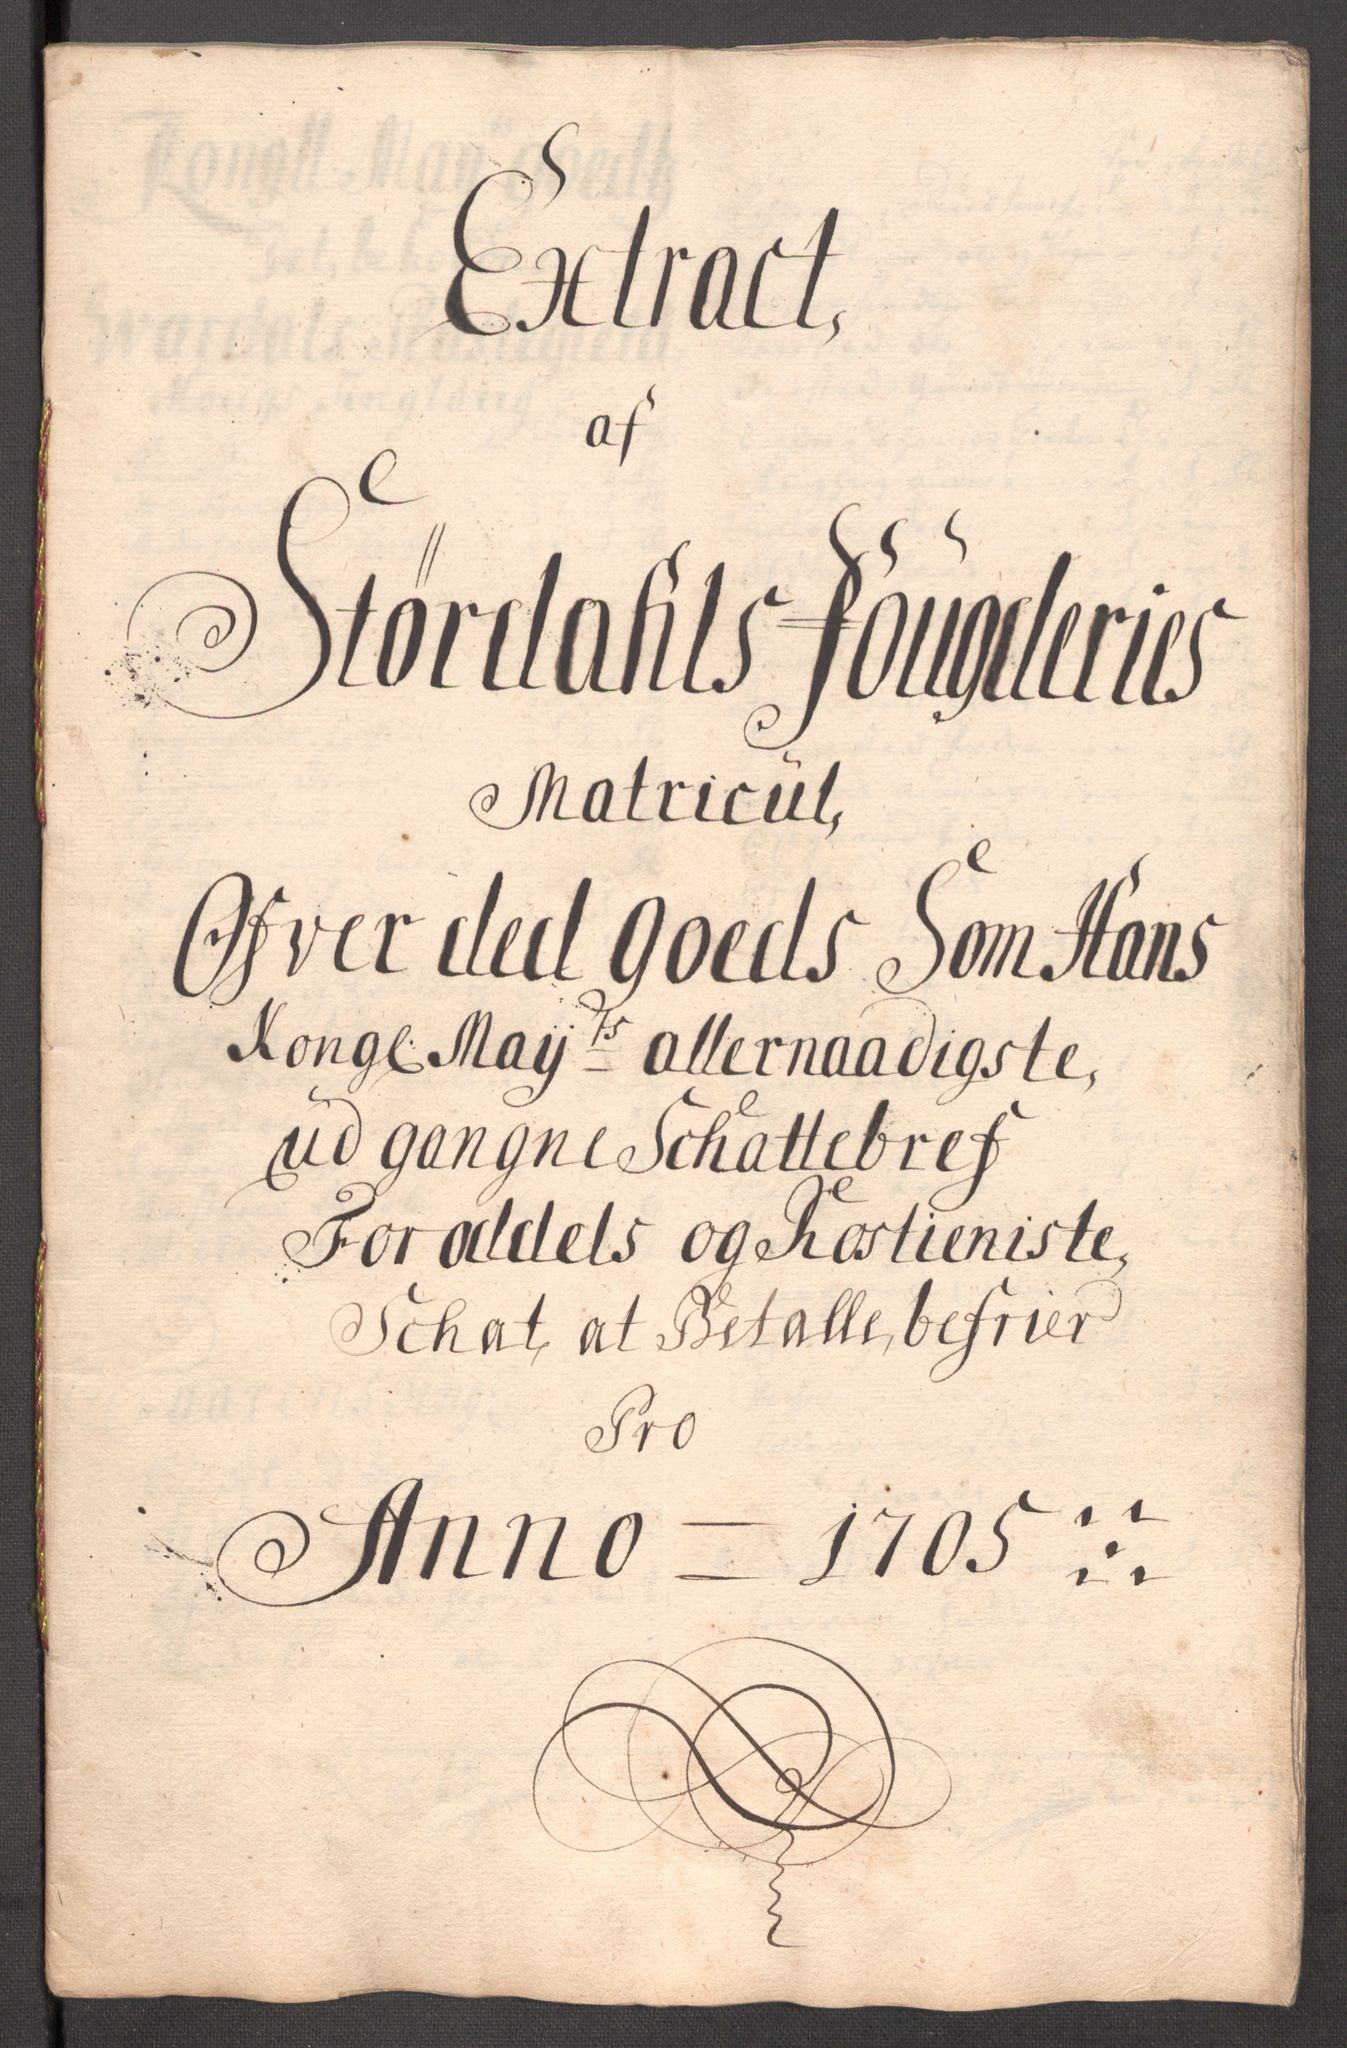 Extract,
af
Stördahls Fougderies
Matricul,
Ofver ded goeds Som Hans
Kongl. Maÿts allernaadigste,
ud gangne Schattebref
For addels og Rostieniste,
Schat, at Betalle, befrier
Pro
Anno = 1705